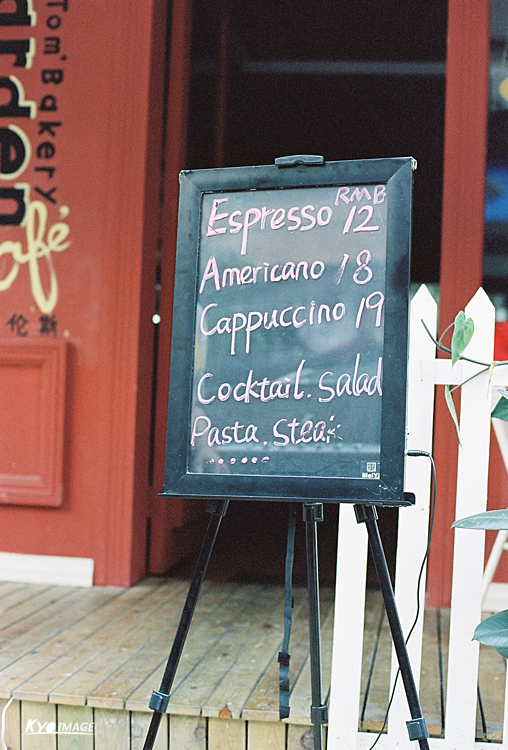 Tom' Bakery
arden
Café
伦斯
RMB
Espresso 12
Americano 18
Cappuccino 19
Cocktail. Salad
Pasta. Steak
......
MeiYi
KYO IMAGE